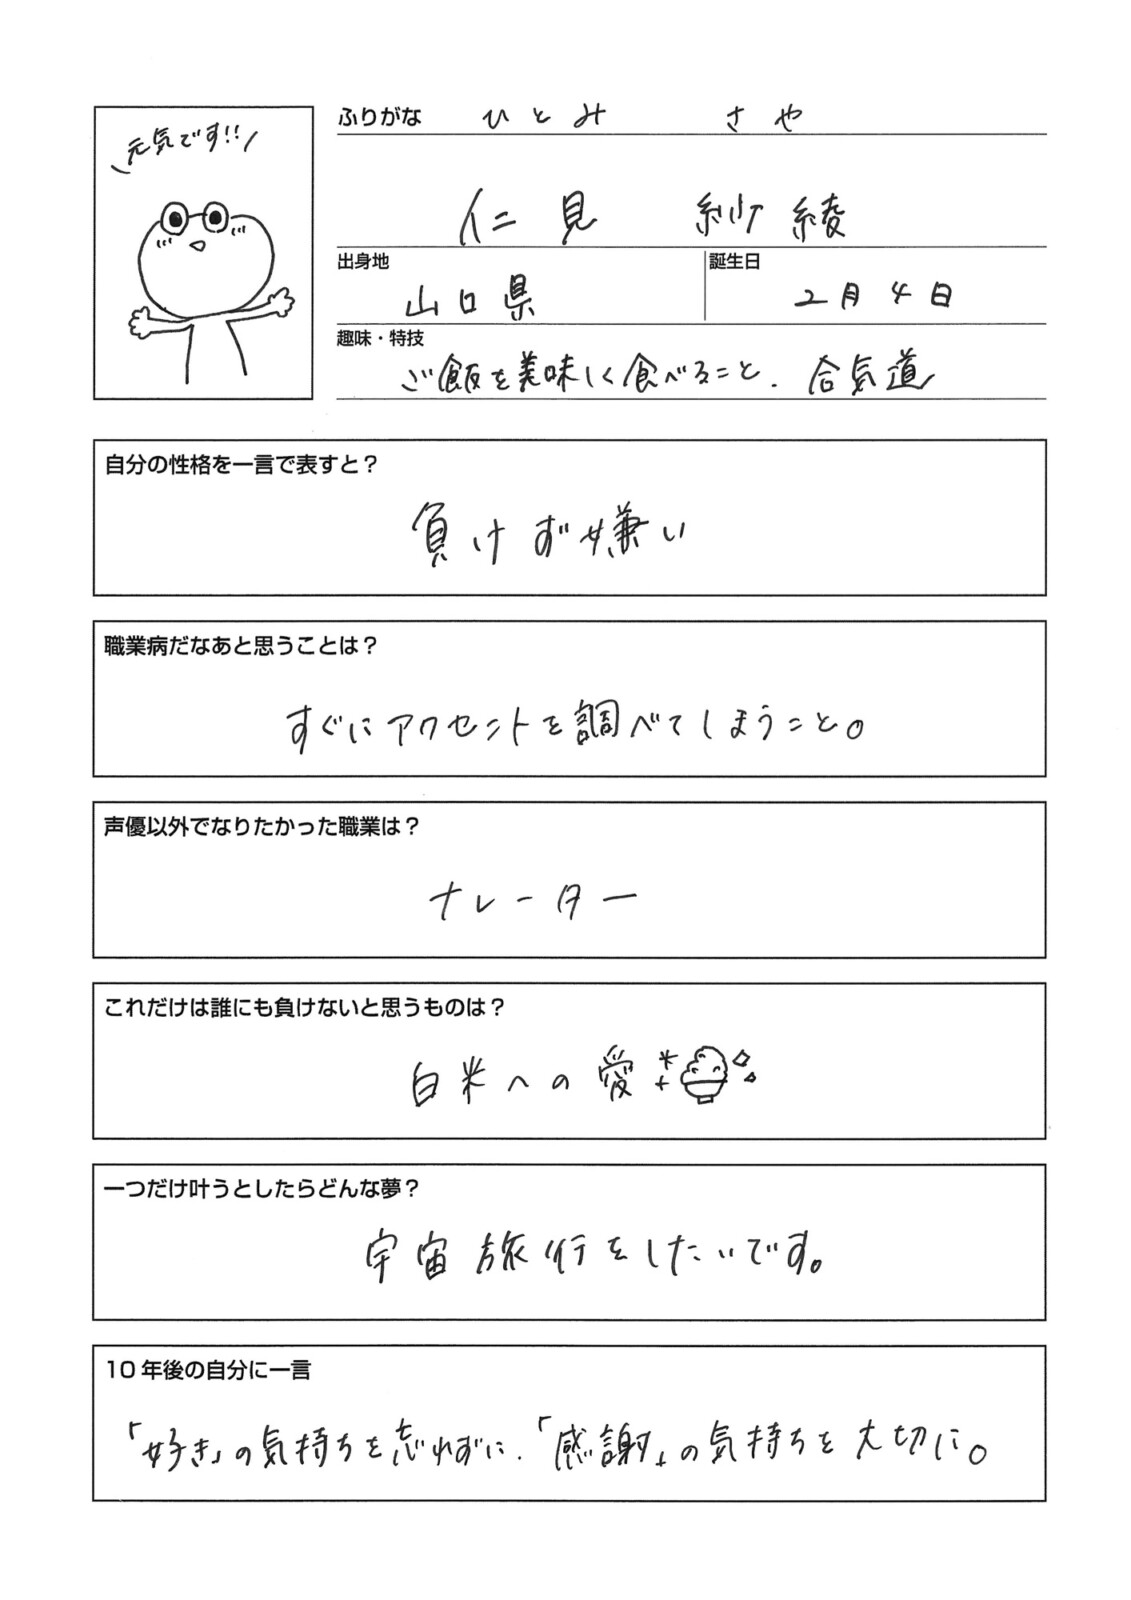 元気です!!
ふりがな ひとみ さや
仁見 紗綾
出身地 誕生日
山口県 2月4日
趣味・特技
ご飯を美味しく食べること、合気道
自分の性格を一言で表すと？
負けず嫌い
職業病だなあと思うことは？
すぐにアクセントを調べてしまうこと。
声優以外でなりたかった職業は？
ナレーター
これだけは誰にも負けないと思うものは？
白米への愛
一つだけ叶うとしたらどんな夢？
宇宙旅行をしたいです。
10年後の自分に一言
「好き」の気持ちを忘れずに、「感謝」の気持ちを大切に。